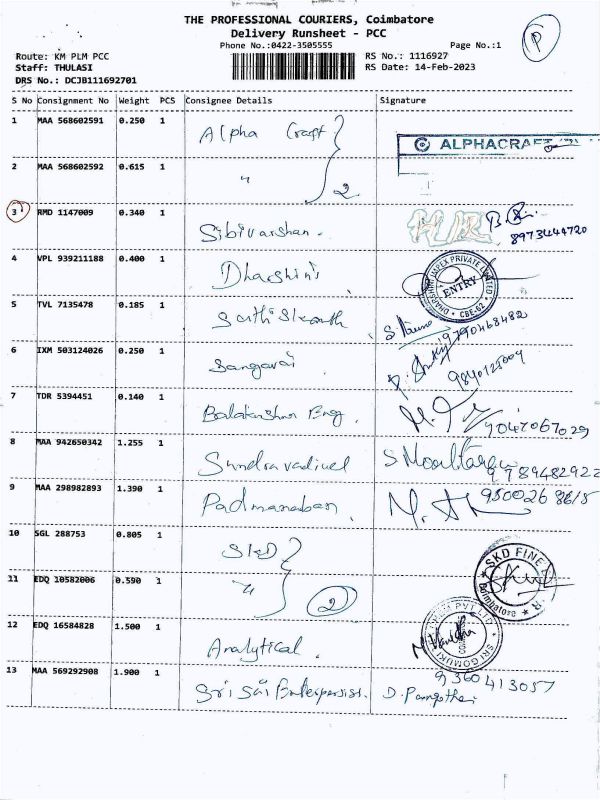 THE PROFESSIONAL COURIERS, Coimbatore
Delivery Runsheet - PCC
Phone No.:0422-3505555 Page No.:1 P
Route: KM PLM PCC RS No.: 1116927
Staff: THULASI RS Date: 14-Feb-2023
DRS No.: DCJB111692701
S No Consignment No Weight PCS Consignee Details Signature
1 MAA 568602591 0.250 1 Alpha Craft ALPHACRAFT
2 MAA 568602592 0.615 1 " 2
3 RMD 1147009 0.340 1 Sibivarshan. 8973444720
4 VPL 939211188 0.400 1 Dharshini DHARSHINI IMPEX PRIVATE LIMITED ENTRY CBE-62
5 TVL 7135478 0.185 1 9790468482
6 IXM 503124026 0.250 1 Sangavai 9840125009
7 TDR 5394451 0.140 1 Balakrishna Eng. 9047067029
8 MAA 942650342 1.255 1 Sundravadivel 9789482922
9 MAA 298982893 1.390 1 Padmanaban. 9500268615
10 SGL 288753 0.805 1 SKD SKD FINE Coimbatore
11 EDQ 10582006 0.590 1 " 2
12 EDQ 16584828 1.500 1 Analytical. SRI GOMUKI PVT LTD
13 MAA 569292908 1.900 1 Sri Sai Enterprises. 9360413057